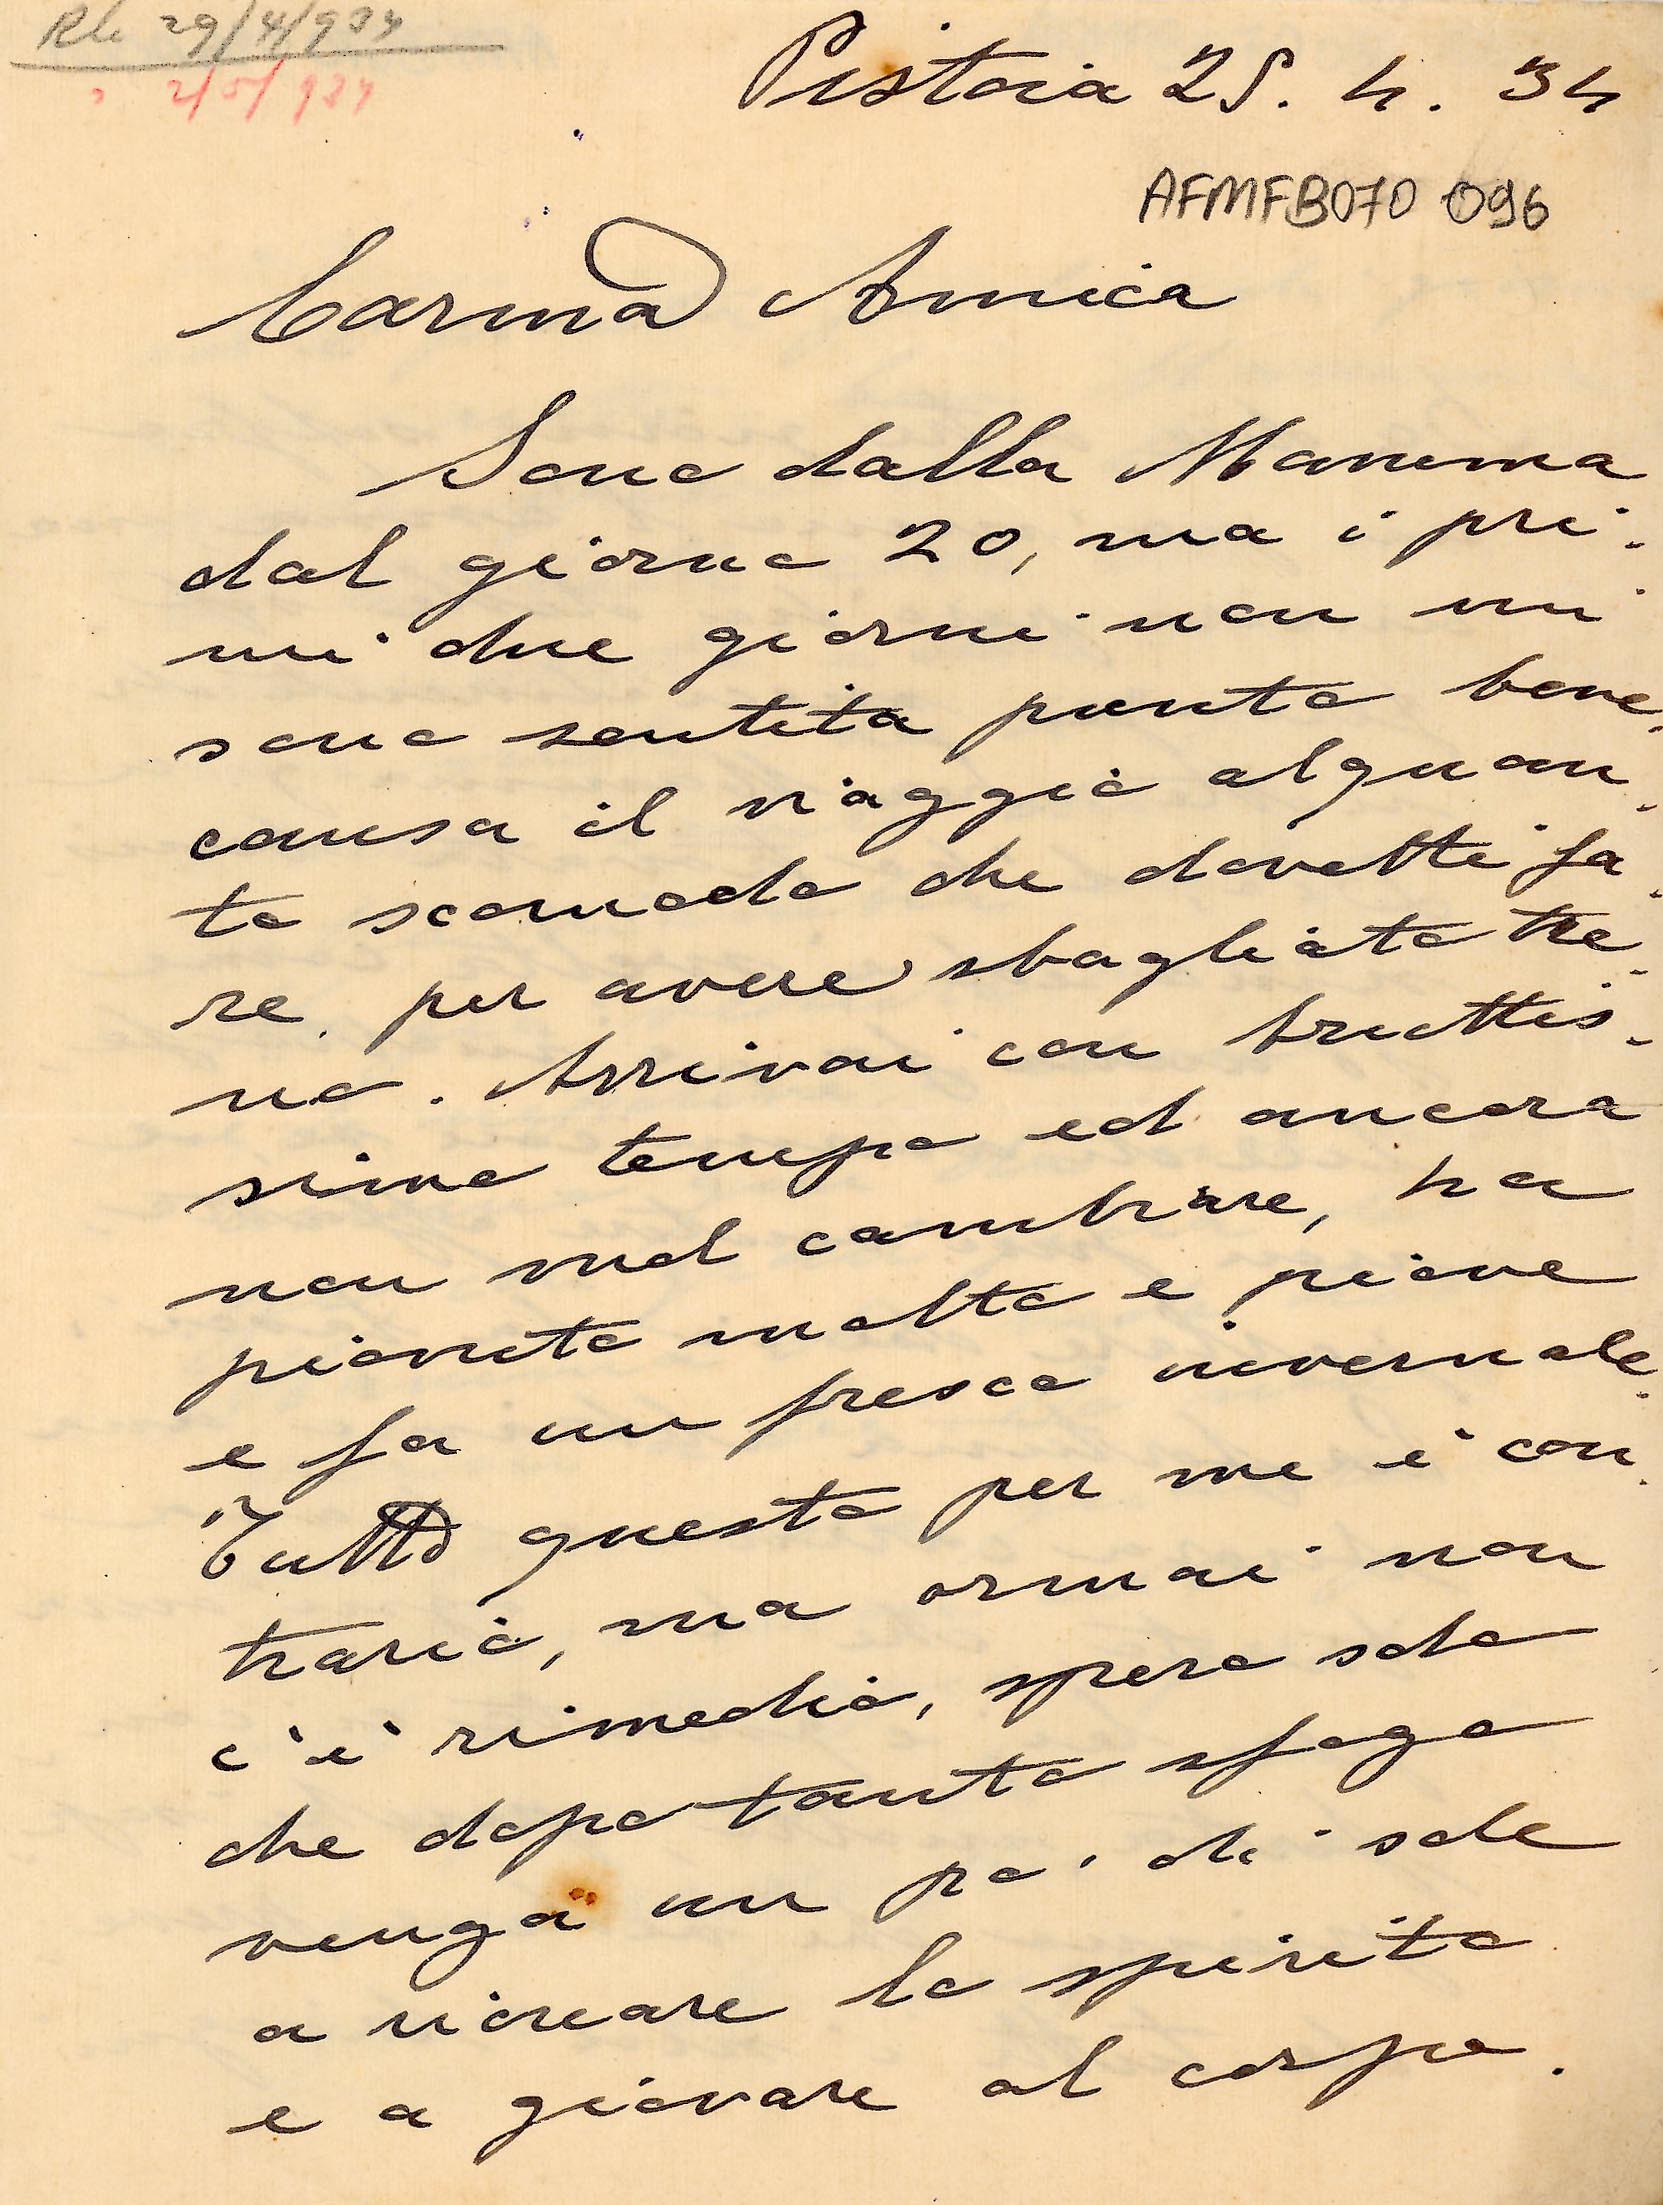 Rle 29/4/934
" 2/5/934
Pistoia 25. 4. 34
AFMFB070 096
Carma Amica
Sono dalla Mamma
dal giorno 20, ma i pri-
mi due giorni non mi
sono sentita punto bene,
causa il viaggio alquan-
to scomodo che dovetti fa-
re, per avere sbagliato tre-
no. Arrivai con bruttis-
simo tempo ed ancora
non vuol cambiare, ha
piovuto molto e piove
e fa un fresco invernale.
Tutto questo per me è con-
trario, ma ormai non
c'è rimedio, spero solo
che dopo tanto sfogo
venga un po' di sole
a ricreare lo spirito
e a giovare al corpo.